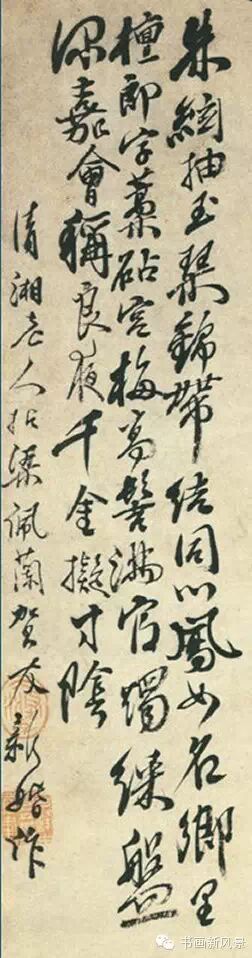 朱絃抽玉琴錦帶結同心鳳女名鄉里
檀郎字藁砧宮梅高髻滿官燭綵盤
深嘉會稱良夜千金擬寸陰
清湘老人拈梁佩蘭賀友新婚作
书画新风景